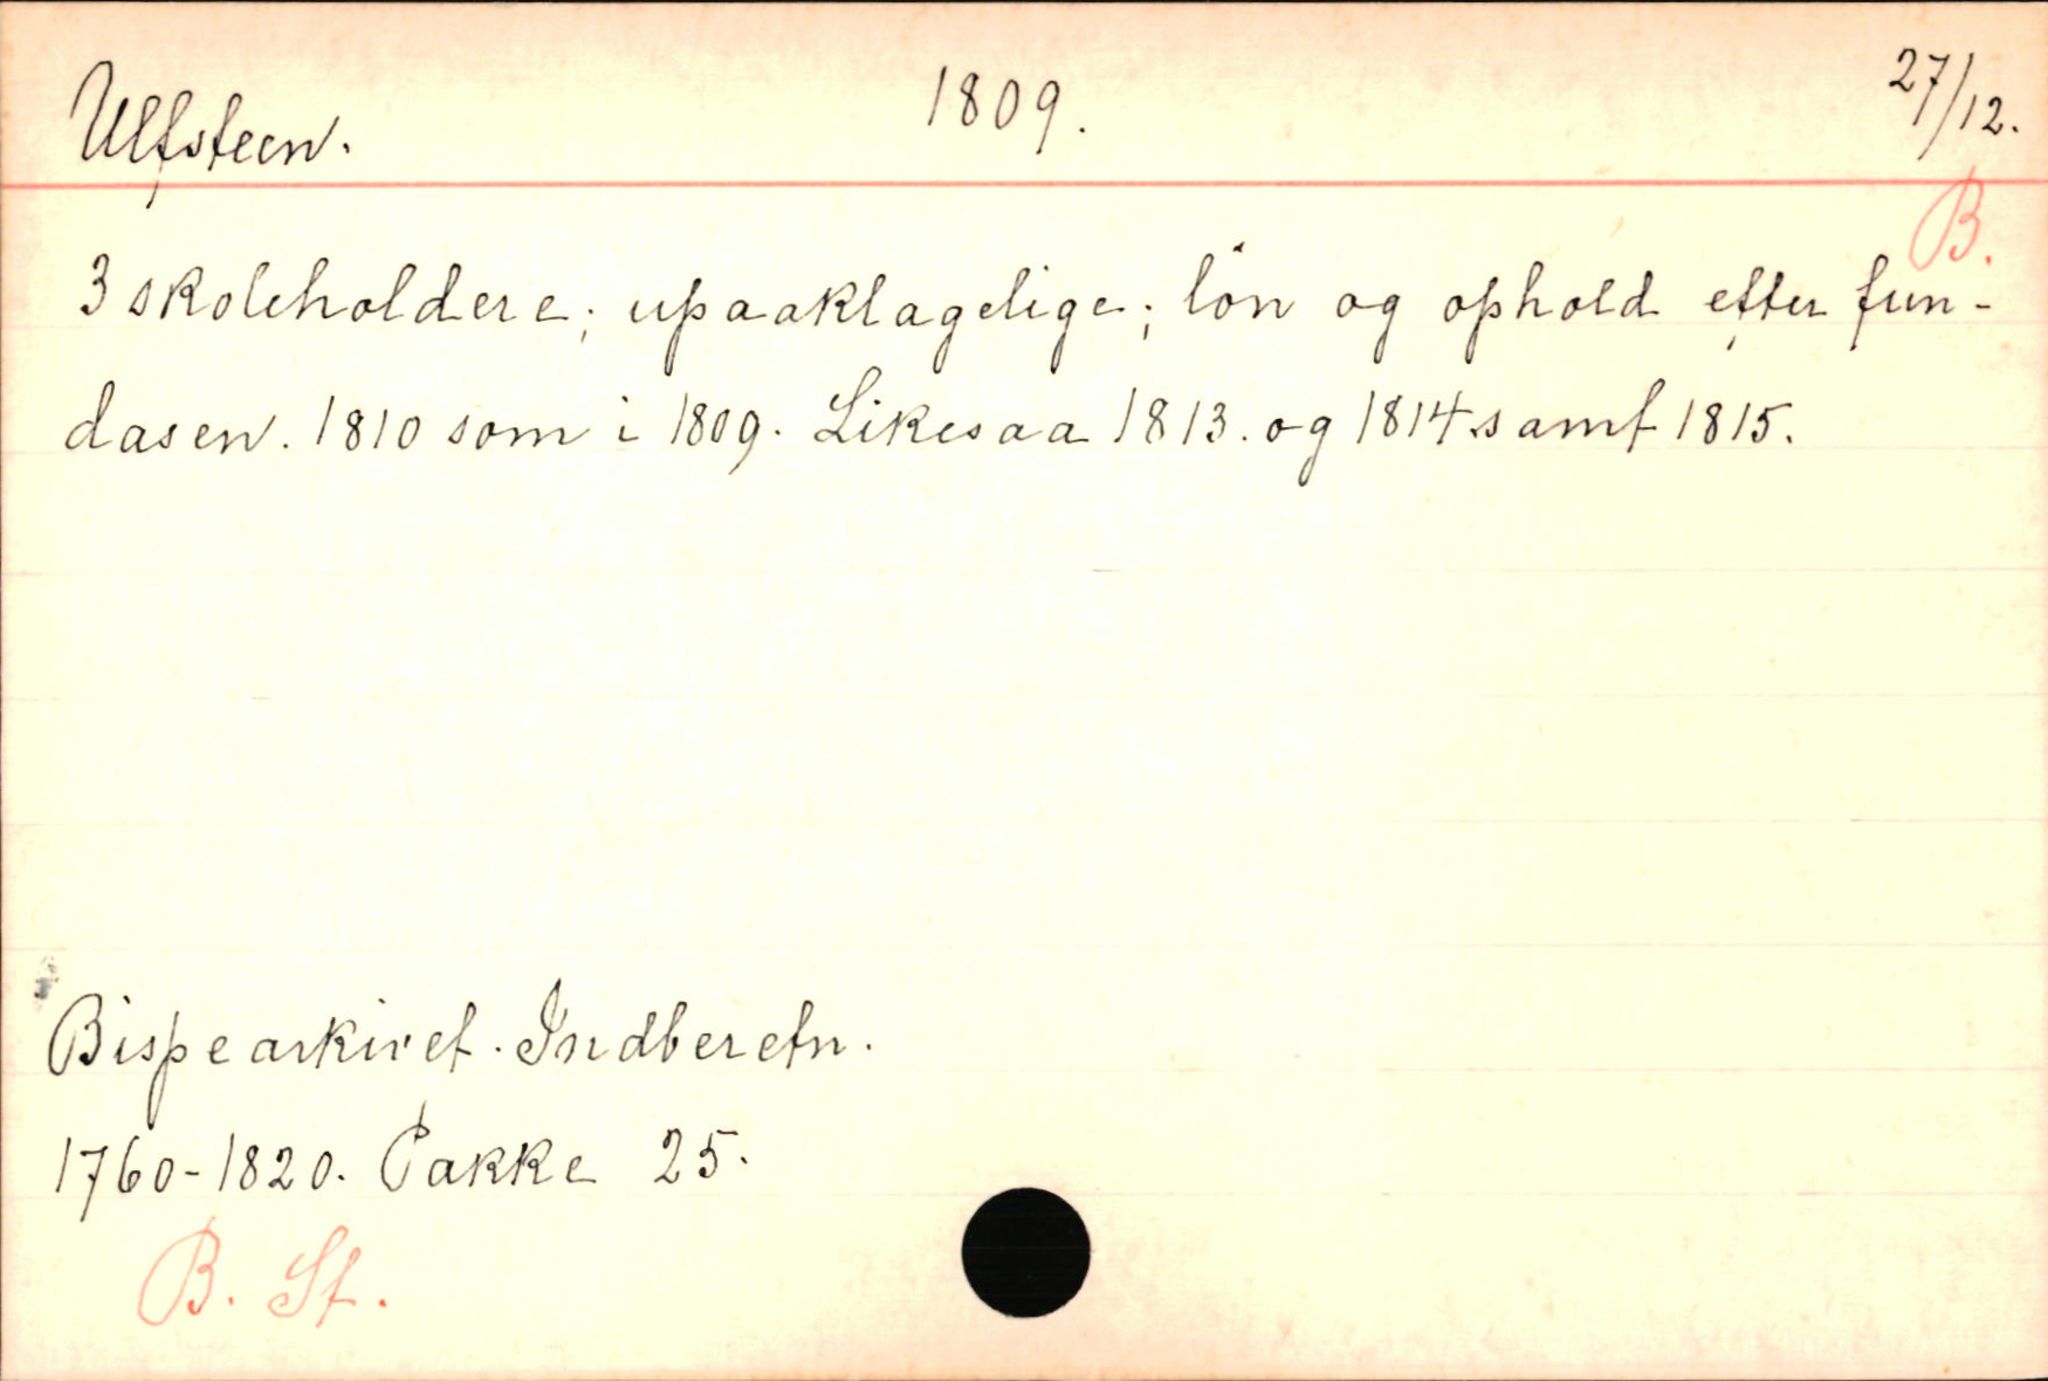 Ulfsteen. 1809. 27/12.
B.
3 skoleholdere; upaaklagelige; lön og ophold efter fun-
dasen. 1810 som i 1809. Likesaa 1813. og 1814 samt 1815.
Bispearkivet. Indberetn.
1760-1820. Pakke 25.
B. St.